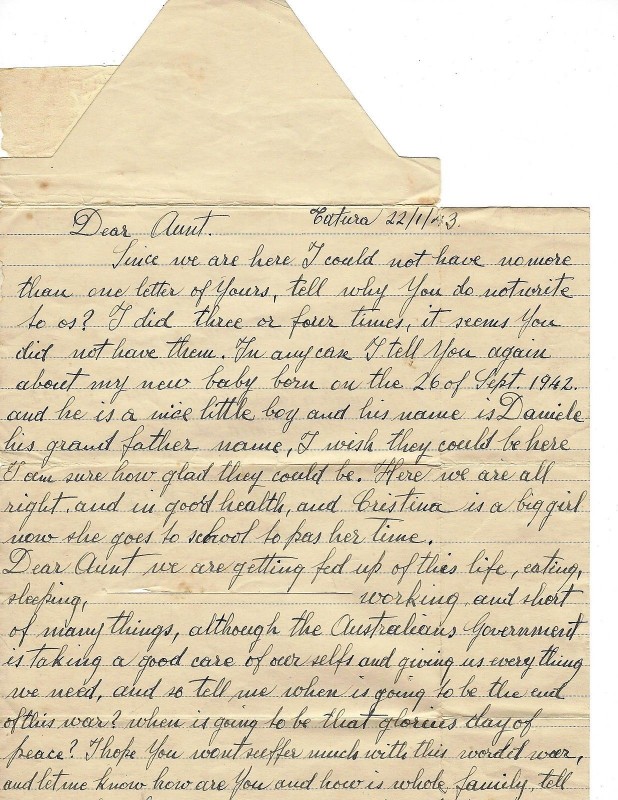 Dear Aunt. Tatura 22/1/43.
Since we are here I could not have no more
than one letter of Yours, tell why You do not write
to os? I did three or four times, it seems You
did not have them. In any case I tell You again
about my new baby born on the 26 of Sept. 1942.
and he is a nice little boy and his name is Daniele
his grand father name, I wish they could be here
I am sure how glad they could be. Here we are all
right, and in good health, and Cristina is a big girl
now she goes to school to pas her time.
Dear Aunt we are getting fed up of this life, eating,
sleeping, working, and short
of many things, although the Australians Government
is taking a good care of our selfs and giving us every thing
we need, and so tell me when is going to be the end
of this war? when is going to be that glorius day of
peace? I hope You wont suffer much with this world war,
and let me know how are You and how is whole family, tell